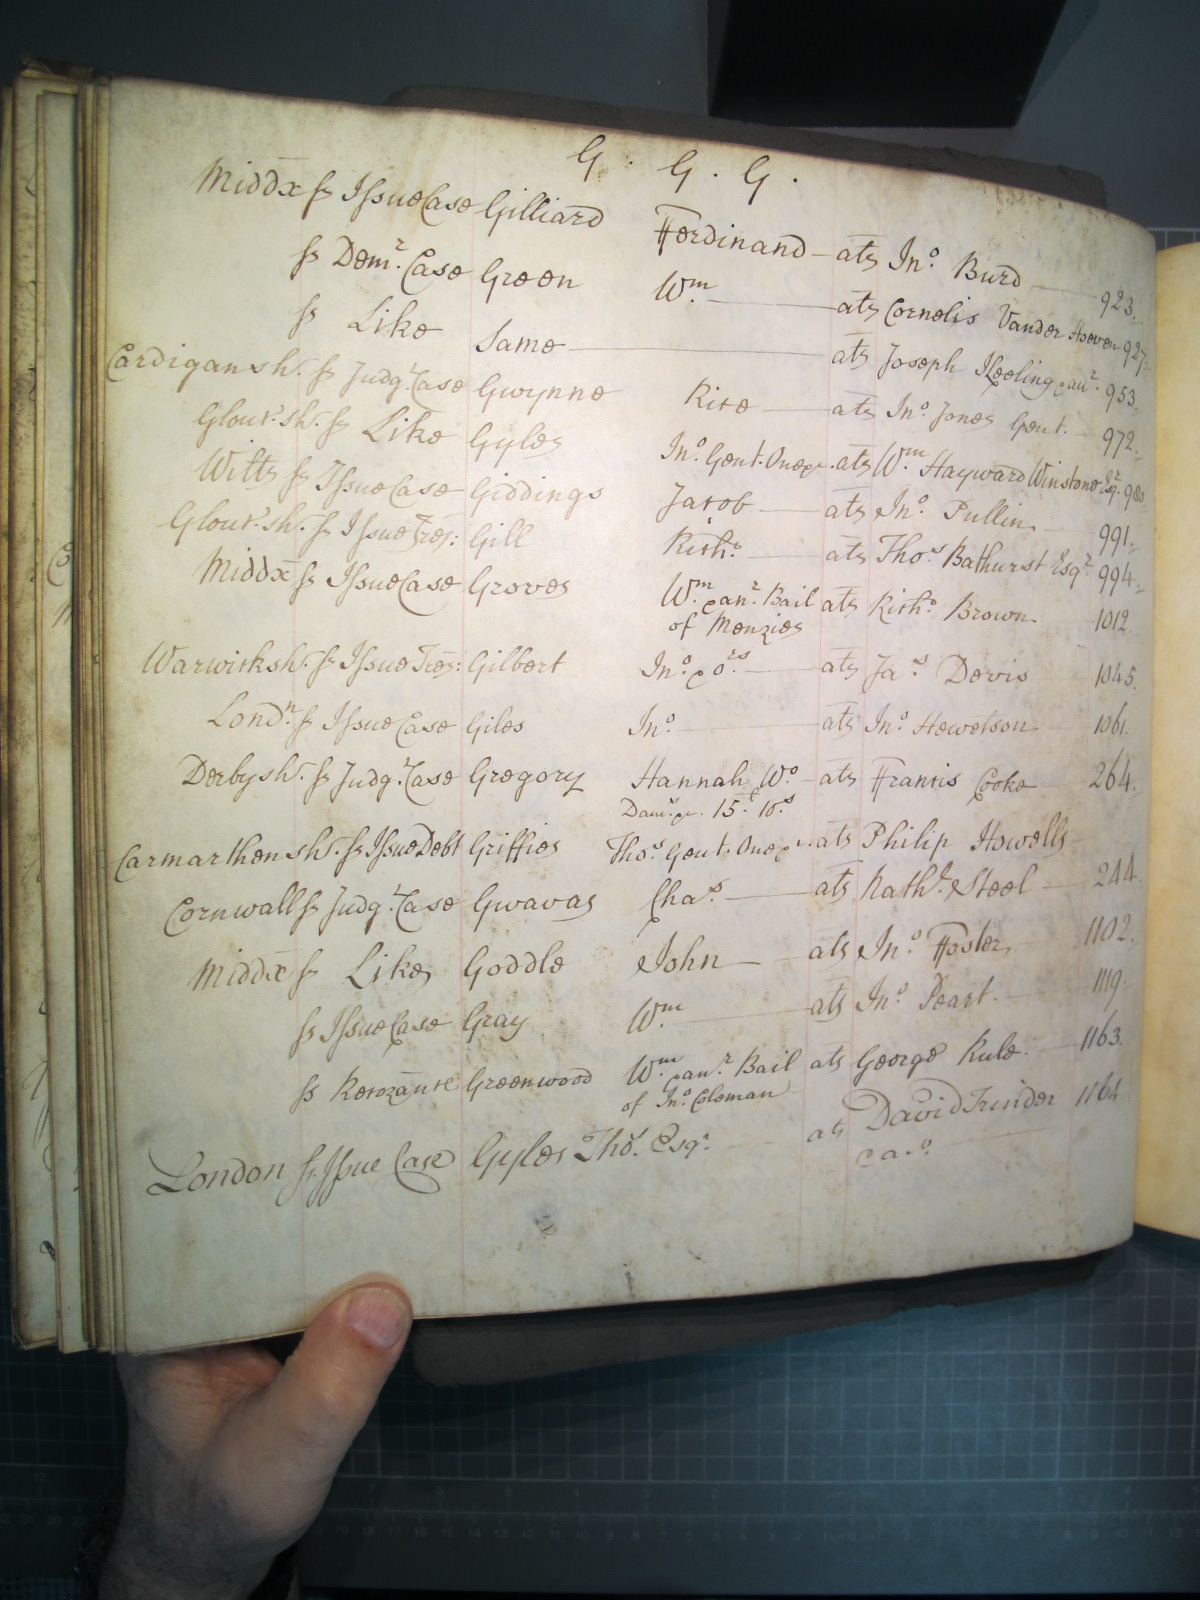 G . G . G .
Middx ss Issue Case Gilliard Ferdinand ats Jno. Burd 923.
ss Demr. Case Green Wm. ats Cornelis Vander Hoeven 927.
ss Like Same ats Joseph Keeling et aur. 953.
Cardigansh. ss Judgt. Case Gwynne Rice ats Jno. Jones Gent. 972.
Gloucr.sh. ss Like Gyles Jno. Gent. One &c. ats Wm. Hayward Winstone Esqr. 980
Wilts ss Issue Case Giddings Jacob ats Jno. Pullin 991.
Gloucr.sh. ss Issue Tres: Gill Richd. ats Thos Bathurst Esqr. 994.
Middx ss Issue Case Groves Wm. et anr. Bail ats Richd. Brown 1012.
of Menzies
Warwicksh. ss Issue Tres: Gilbert Jno. et ors ats Jas Devis 1045.
Londn. ss Issue Case Giles Jno. ats Jno. Hewetson 1061.
Derbysh. ss Judgt. Case Gregory Hannah Wo. ats Francis Cooke 264.
Dams. 15.£ 10.s
Carmarthensh. ss Issue Debt Griffies Thos. Gent. One &c. ats Philip Howells
Cornwall ss Judgt. Case Gwavas Chas. ats Nathl. Steel 244.
Middx ss Likes Goddle John ats Jno. Foster 1102.
ss Issue Case Gray Wm. ats Jno. Peart. 1119.
ss Recozance Greenwood Wm. et anr. Bail ats George Rule. 1163.
of Jno. Coleman
London ss Issue Case Gyles Thos. Esqr. ats David Trinder 1164